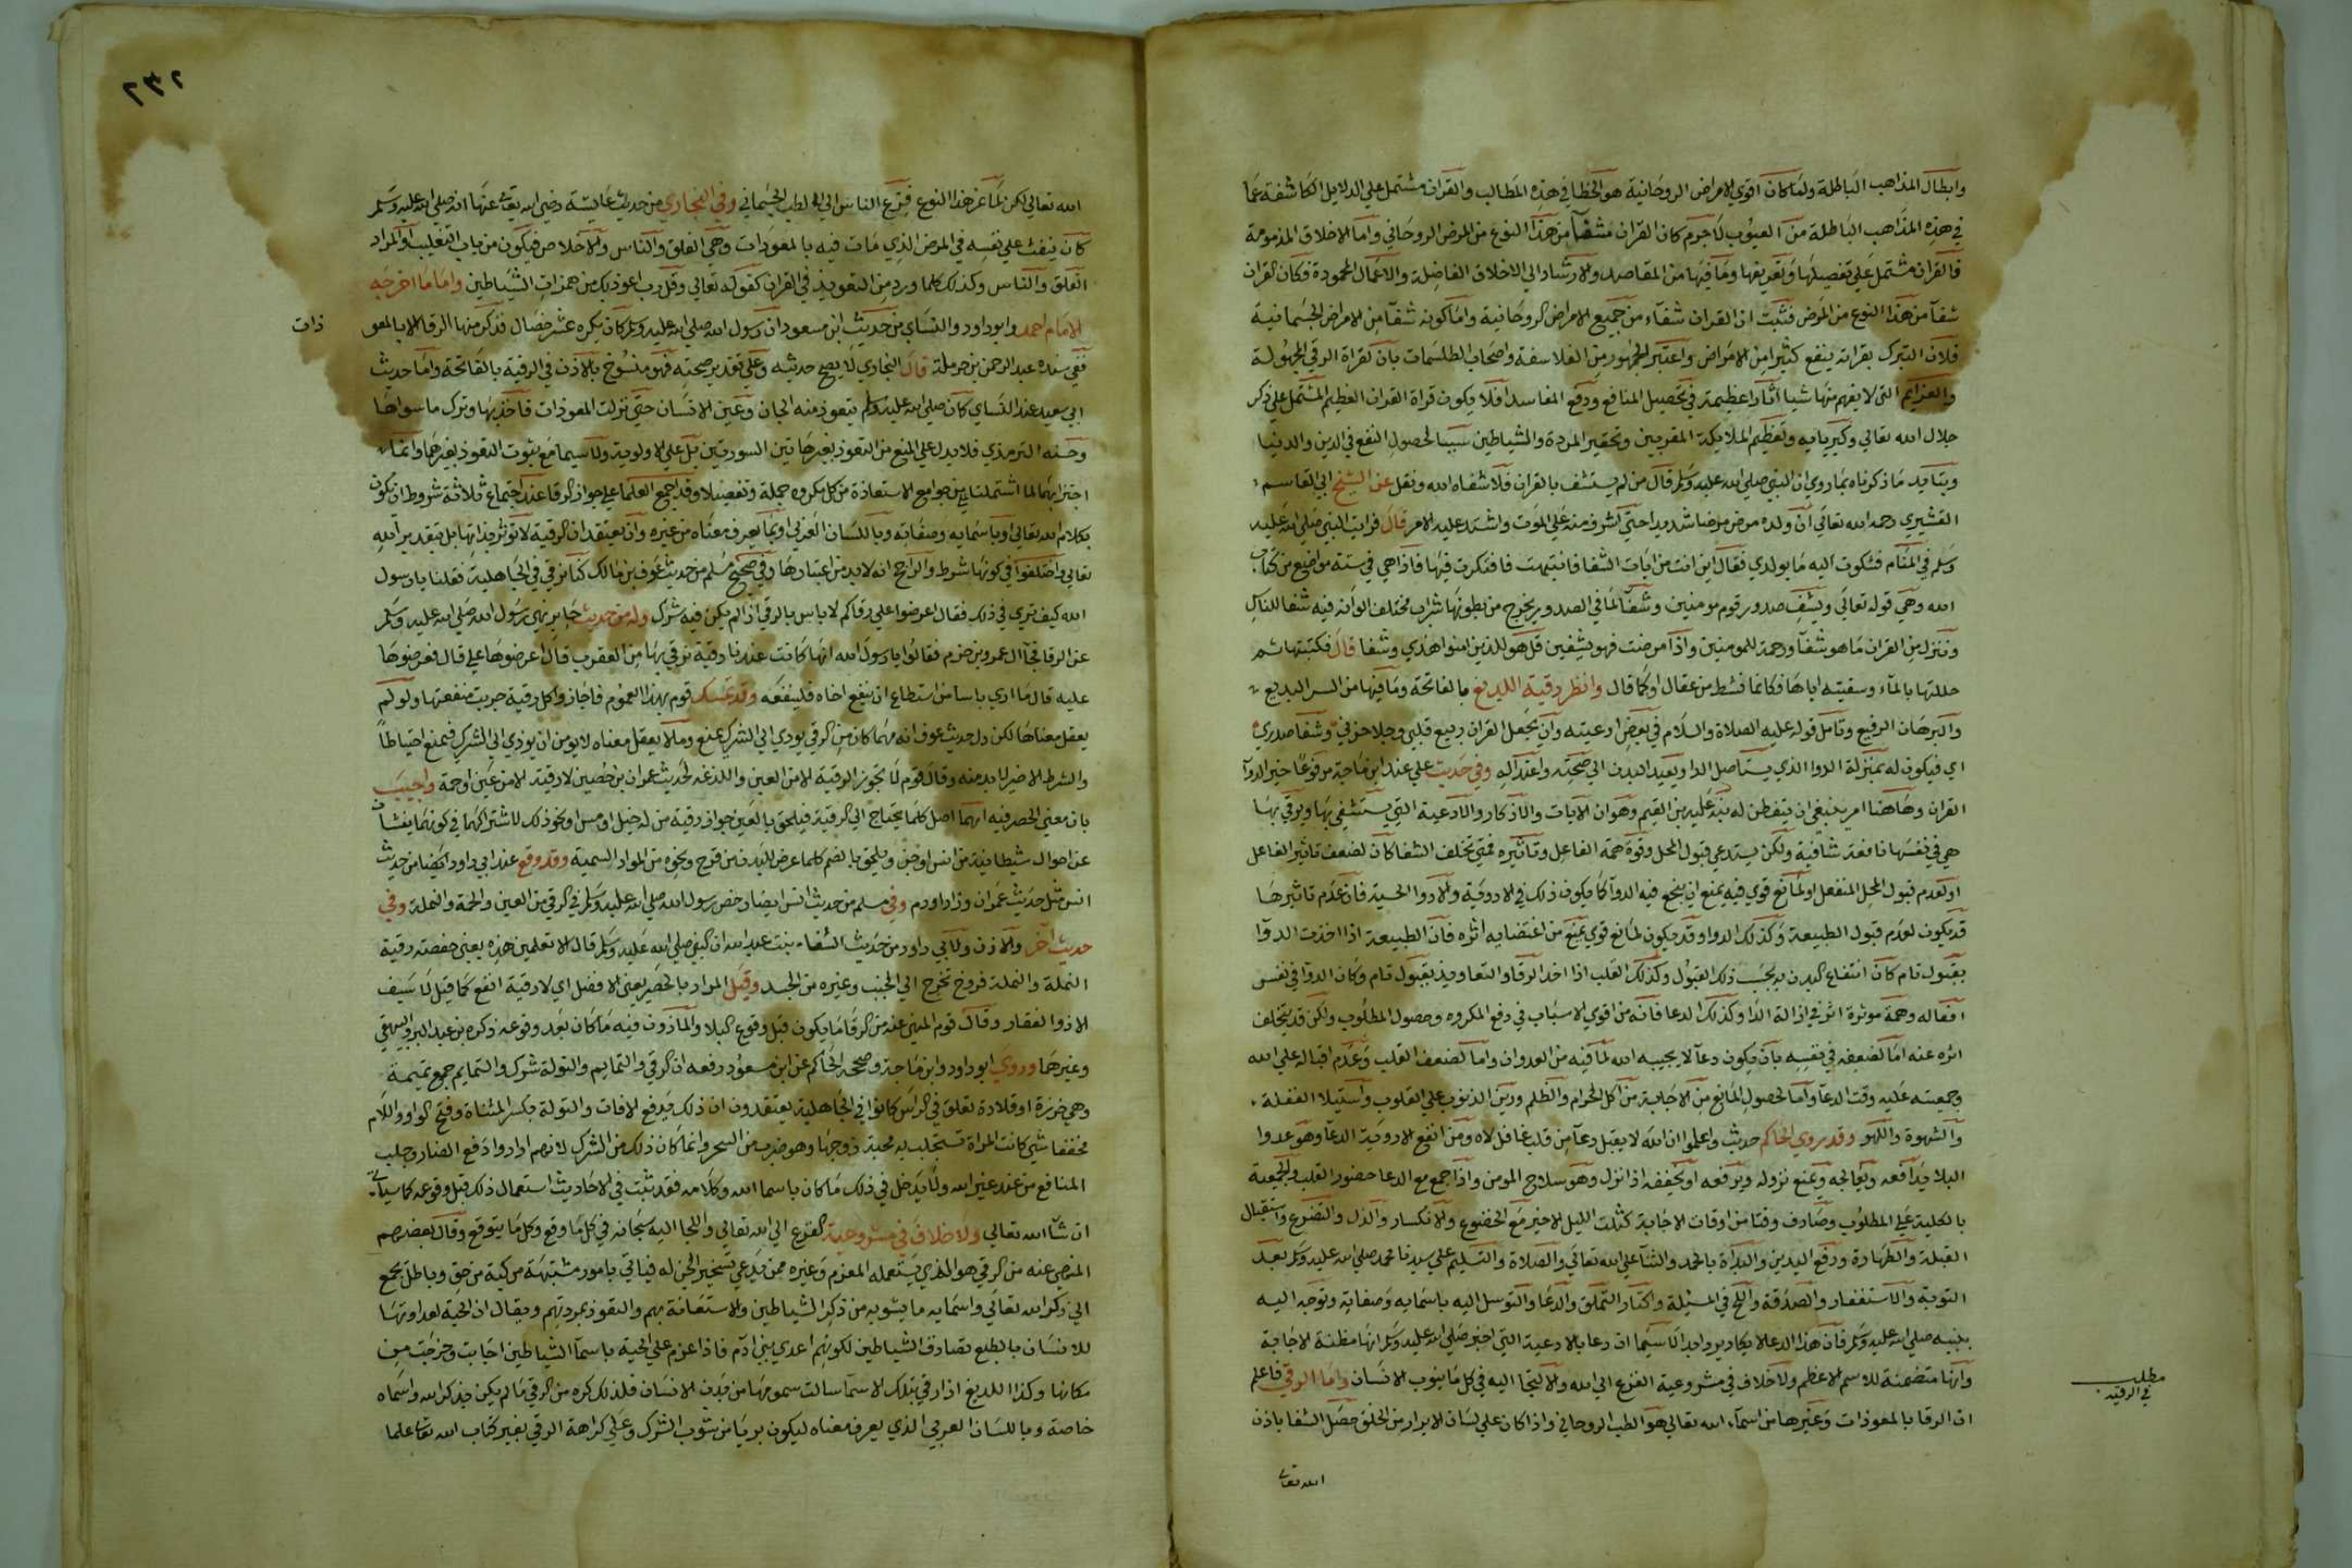 وابطال المذاهب الباطلة ولما كان اقوي الامراض الروحانية هو الخطا في هذه المطالب والقران مشتمل علي الدلايل الكاشفة عما
في هذه المذاهب الباطلة من العيوب لا جرم كان القران شفآ من هذا النوع من المرض الروحاني واما الاخلاق المذمومة
فالقران مشتمل علي تفصيلها وتعريفها وما فيها من المقاصد والارشاد الي الاخلاق الفاضلة والاعمال المحمودة فكان القران
شفآ من هذا النوع من المرض فثبت ان القران شفاء من جميع الامراض الروحانية واما كونه شفآ من الامراض الجسمانية
فلان التبرك بقراته ينفع كثيرا من الامراض واعتبر الجمهور من الفلاسفة واصحاب الطلسمات بان لقراة الرقي المجهولة
والعزايم التي لا يفهم منها شيا اثارا عظيمة في تحصيل المنافع ودفع المفاسد افلا يكون قراة القران العظيم المشتمل علي ذكر
جلال الله تعالي وكبريايه وتعظيم الملايكة المقربين وتحقير المردة والشياطين سببا لحصول النفع في الدين والدنيا
ويتايد ما ذكرناه بما روي ان النبي صلي الله عليه وسلم قال من لم يستشف بالقران فلا شفاه الله ونقل عن الشيخ ابي القاسم
القشيري رحمه الله تعالي ان ولده مرض مرضا شديدا حتي اشرف منه علي الموت واشتد عليه الامر قال فرايت النبي صلي الله عليه
وسلم في المنام فشكوت اليه ما بولدي فقال اين انت من ايات الشفا فانتبهت فافتكرت فيها فاذا هي في ستة مواضع من كتاب
الله وهي قوله تعالي ويشف صدور قوم مومنين وشفآ لما في الصدور يخرج من بطونها شراب مختلف الوانه فيه شفا للناس
وننزل من القران ما هو شفآ ورحمة للمومنين واذا مرضت فهو يشفين قل هو للذين امنوا هدي وشفا قال فكتبتها ثم
حللتها بالمآء وسقيته اياها فكانما نشط من عقال او كما قال وانظر رقية اللديغ بالفاتحة وما فيها من السر البديع
والبرهان الرفيع وتامل قوله عليه الصلاة والسلام في بعض ادعيته وان يجعل القران ربيع قلبي وجلا حزني وشفا صدري
اي فيكون له بمنزلة الدوا الذي يستاصل الدا ويعيد البدن الي صحته واعتداله وفي حديث علي عند ابن ماجة مرفوعا خير الدوآ
القران وهاهنا امر ينبغي ان يتفطن له نبه عليه ابن القيم وهو ان الايات والاذكار والادعية التي يستشفي بها ويرقي بها
هي في نفسها نافعة شافية ولكن يستدعي قبول المحل وقوة همة الفاعل وتاثيره فمتي تخلف الشفا كان لضعف تاثير الفاعل
او لعدم قبول المحل المنفعل او لمانع قوي فيه يمنع ان ينجع فيه الدوآ كما يكون ذلك في الادوية والادوا الحسية فان عدم تاثيرها
قد يكون لعدم قبول الطبيعة وكذلك الدوا وقد يكون لمانع قوي يمنع من اقتضايه اثره فان الطبيعة اذا اخذت الدوآ
بقبول تام كان انتفاع البدن به بحسب ذلك القبول وكذلك القلب اذا اخذ الرقا والتعاويذ بقبول تام وكان الدوا في نفس
افعاله وهمة موثرة اثر في ازالة الدا وكذلك الدعا فانه من اقوي الاسباب في دفع المكروه وحصول المطلوب ولكن قد يتخلف
اثره عنه اما لضعفه في نفسه بان يكون دعآ لا يجيبه الله لما فيه من العدوان واما لضعف القلب وعدم اقباله علي الله
وجمعيته عليه وقت الدعآ واما لحصول المانع من الاجابة من اكل الحرام والظلم ورين الذنوب علي القلوب واستيلا الغفلة
والشهوة واللهو وقد روي الحاكم حديث واعلموا ان الله لا يقبل دعآ من قلب غافل لاه ومن انفع الادوية الدعآ وهو عدوا
البلا يدافعه ويعالجه ويمنع نزوله ويرفعه او يخففه اذا نزل وهو سلاح المومن واذا جمع مع الدعا حضور القلب والجمعية
بالكلية علي المطلوب وصادف وقتا من اوقات الاجابة كثلث الليل الاخير مع الخضوع والانكسار والذل والتضرع واستقبال
القبلة والطهارة ورفع اليدين والبدآة بالحمد والثنآ علي الله تعالي والصلاة والتسليم علي سيدنا محمد صلي الله عليه وسلم بعد
التوبة والاستغفار والصدقة والح في المسئلة واكثار التملق والدعا والتوسل اليه باسمايه وصفاته وتوجه اليه
بنبيه صلي الله عليه وسلم فان هذا الدعا لا يكاد يرد ابدا لا سيما ان دعا بالادعية التي اخبر صلي الله عليه وسلم انها مظنة الاجابة
وانها متضمنة للاسم الاعظم ولا خلاف في مشروعية الفزع الي الله والالتجا اليه في كل ما ينوب الانسان واما الرقي فاعلم
ان الرقا بالمعوذات وغيرها من اسمآء الله تعالي هو الطب الروحاني واذا كان علي لسان الابرار من الخلق حصل الشفا باذن
الله تعالي
مطلب
في الرقية
٢٣٢
الله تعالي لكن لما عز هذا النوع فزع الناس الي الطب الجسماني وفي البخاري من حديث عايشة رضي الله تعالي عنها انه صلي الله عليه وسلم
كان ينفث علي نفسه في المرض الذي مات فيه بالمعوذات وهي الفلق والناس والاخلاص فيكون من باب التغليب او المراد
الفلق والناس وكذلك كلما ورد من التعويذ في القران كقوله تعالي وقل رب اعوذ بك من همزات الشياطين واما ما اخرجه
الامام احمد وابو داود والنساي من حديث ابن مسعود ان رسول الله صلي الله عليه وسلم كان يكره عشر خصال فذكر منها الرقا الا بالمعو
ذات
ففي سنده عبد الرحمن بن حرملة قال البخاري لا يصح حديثه وعلي تقدير صحته فهو منسوخ بالاذن في الرقية بالفاتحة واما حديث
ابي سعيد عند النساي كان صلي الله عليه وسلم يتعوذ منه الجان وعين الانسان حتي نزلت المعوذات فاخذ بها وترك ما سواها
وحسنه الترمذي فلا يدل علي المنع من التعوذ بغير هاتين السورتين بل علي الاولوية ولا سيما مع ثبوت التعوذ بغيرهما وانما
اجتزا بهما لما اشتملتا عليه من جوامع الاستعاذة من كل مكروه جملة وتفصيلا وقد اجمع العلما علي جواز الرقا عند اجتماع ثلاثة شروط ان تكون
بكلام الله تعالي او باسمايه وصفاته وباللسان العربي او بما يعرف معناه من غيره وان يعتقد ان الرقية لا توثر بذاتها بل بتقدير الله
تعالي واختلفوا في كونها شرط والراجح انه لا بد من اعتبارها وفي صحيح مسلم من حديث عوف بن مالك كنا نرقي في الجاهلية فقلنا يا رسول
الله كيف تري في ذلك فقال اعرضوا علي رقاكم لا باس بالرقي اذا لم يكن فيه شرك وله من حديث جابر نهي رسول الله صلي الله عليه وسلم
عن الرقا فجآ ال عمرو بن حزم فقالوا يا رسول الله انها كانت عندنا رقية نرقي بها من العقرب قال اعرضوها علي قال فعرضوها
عليه قال ما اري باسا من استطاع ان ينفع اخاه فلينفعه وقد تمسك قوم بهذا العموم فاجازوا كل رقية جربت منفعتها ولو لم
يعقل معناها لكن دل حديث عوف انه مهما كان من الرقي يودي الي الشرك يمنع وما لا يعقل معناه لا يومن ان يودي الي الشرك فيمنع احتياطا
والشرط الاخير لا بد منه وقال قوم لا تجوز الرقية الا من العين واللدغة لحديث عمران بن حصين لا رقية الا من عين او حمة واجيب
بان معني الحصر فيه انهما اصل كلما يحتاج الي الرقية فيلحق بالعين جواز رقية من له خبل او مس او نحو ذلك لاشتراكهما في كونهما ينشآن
عن احوال شيطانية من انس او جن ويلحق بالسم كلما عرض للبدن من قرح ونحوه من المواد السمية وقد وقع عند ابي داود ايضا من حديث
انس مثل حديث عمران وزاد او دم وفي مسلم من حديث انس ايضا رخص رسول الله صلي الله عليه وسلم في الرقي من العين والحمة والنملة وفي
حديث آخر والاذن ولابي داود من حديث الشفاء بنت عبد الله ان النبي صلي الله عليه وسلم قال الا تعلمين هذه يعني حفصة رقية
النملة والنملة قروح تخرج الي الجنب وغيره من الجسد وقيل المراد بالحصر يعني الافضل اي لا رقية انفع كما قيل لا سيف
الا ذوالفقار وقال قوم المنهي عنه من الرقا ما يكون قبل وقوع البلا والماذون فيه ما كان بعد وقوعه ذكره بن عبد البر والبيهقي
وغيرهما وروي ابو داود وابن ماجة وصححه الحاكم عن ابن مسعود رفعه ان الرقي والتمايم والتولة شرك والتمايم جمع تميمة
وهي خرزة او قلادة تعلق في الراس كانوا في الجاهلية يعتقدون ان ذلك يدفع الافات والتولة بكسر المثناة وفتح الواو واللام
مخففا شي كانت المراة تستجلب به محبة زوجها وهو ضرب من السحر وانما كان ذلك من الشرك لانهم ارادوا دفع المضار وجلب
المنافع من عند غير الله ولا يدخل في ذلك ما كان باسما الله وكلامه فقد ثبت في الاحاديث استعمال ذلك قبل وقوعه كما سياتي
ان شآ الله تعالي ولا خلاف في مشروعية الفزع الي الله تعالي واللجا اليه سبحانه في كل ما وقع وكل ما يتوقع وقال بعضهم
المنهي عنه من الرقي هو الذي يستعمله المعزم وغيره ممن يدعي تسخير الجن له فياتي بامور مشتبهة مركبة من حق وباطل يجمع
الي ذكر الله تعالي واسمايه ما يشوبه من ذكر الشياطين والاستعانة بهم والتعوذ بمردتهم ويقال ان الحية لعداوتها
للانسان بالطبع تصادق الشياطين لكونهم اعدي بني ادم فاذا عزم علي الحية باسمآ الشياطين اجابت وخرجت من
مكانها وكذا اللديغ اذا رقي بتلك الاسمآ سالت سمومها من بدن الانسان فلذلك كره من الرقي ما لم يكن بذكر الله واسماه
خاصة وباللسان العربي الذي يعرف معناه ليكون بريا من شوب الشرك وعلي كراهة الرقي بغير كتاب الله تعالي علما